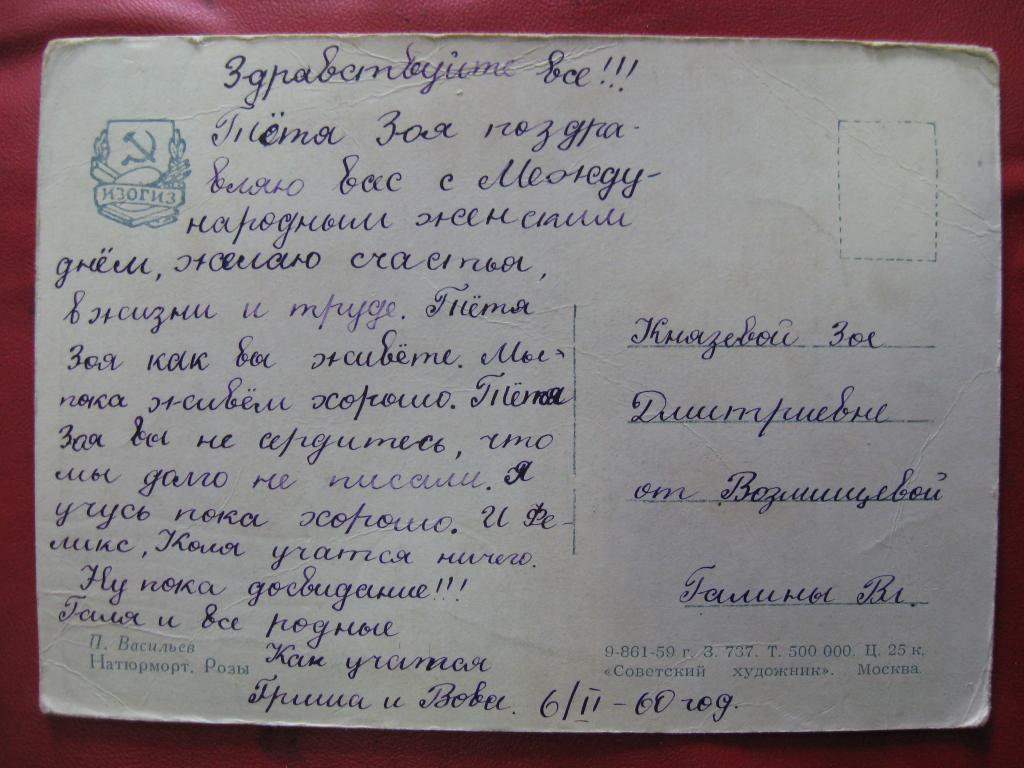 Здравствуйте все!!!
Тётя Зоя поздра-
вляю вас с Между-
народным женским
днём, желаю счастья,
в жизни и труде. Тётя
Зоя как вы живёте. Мы
пока живём хорошо. Тётя
Зоя вы не сердитесь, что
мы долго не писали. Я
учусь пока хорошо. И Фе-
ликс, Коля учатся ничего.
Ну пока досвидание!!!
Галя и все родные
Как учатся
Гриша и Вова. 6/II-60 год.
ИЗОГИЗ
П. Васильев
Натюрморт. Розы
Князевой Зое
Дмитриевне
от Возмищевой
Галины Вл.
9-861-59 г. З. 737. Т. 500 000. Ц. 25 к.
«Советский художник». Москва.